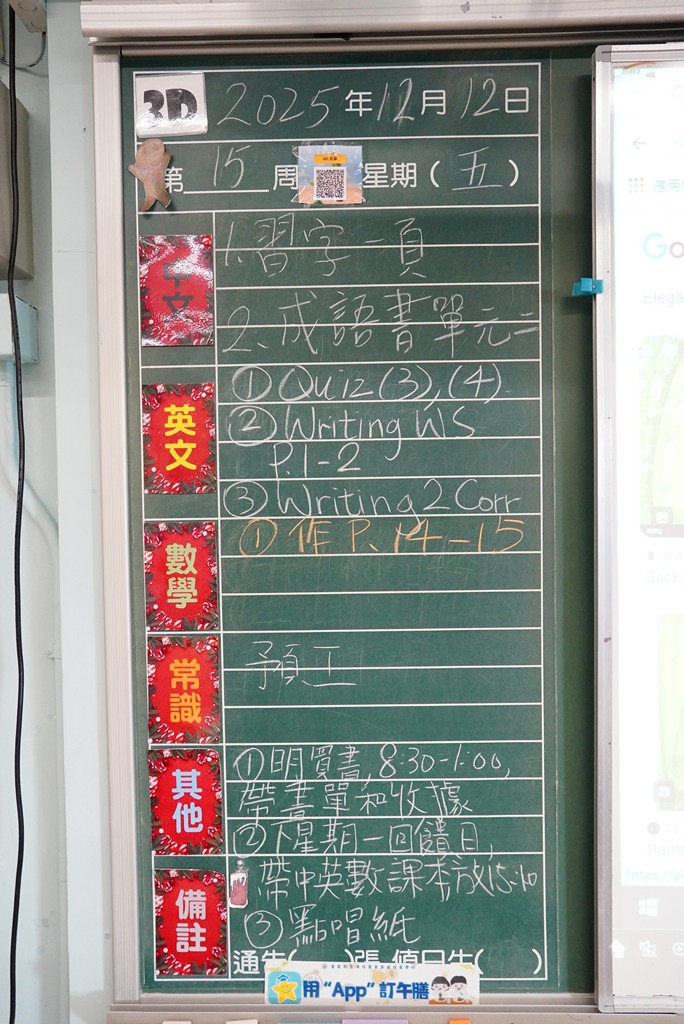 3D 2025年12月12日
第15周 星期(五)
中文
1.習字一頁
2、成語書單元二
英文
① Quiz (3), (4)
② Writing WS
P.1-2
③ Writing 2 Corr
數學
① 作 P、14-15
常識
預工
其他
①明買書, 8:30-1:00,
帶書單和收據
②下星期一回饋日,
備註
帶中英數課本放15:10
③點唱紙
通告( )張 值日生( )
用“App”訂午膳
Go